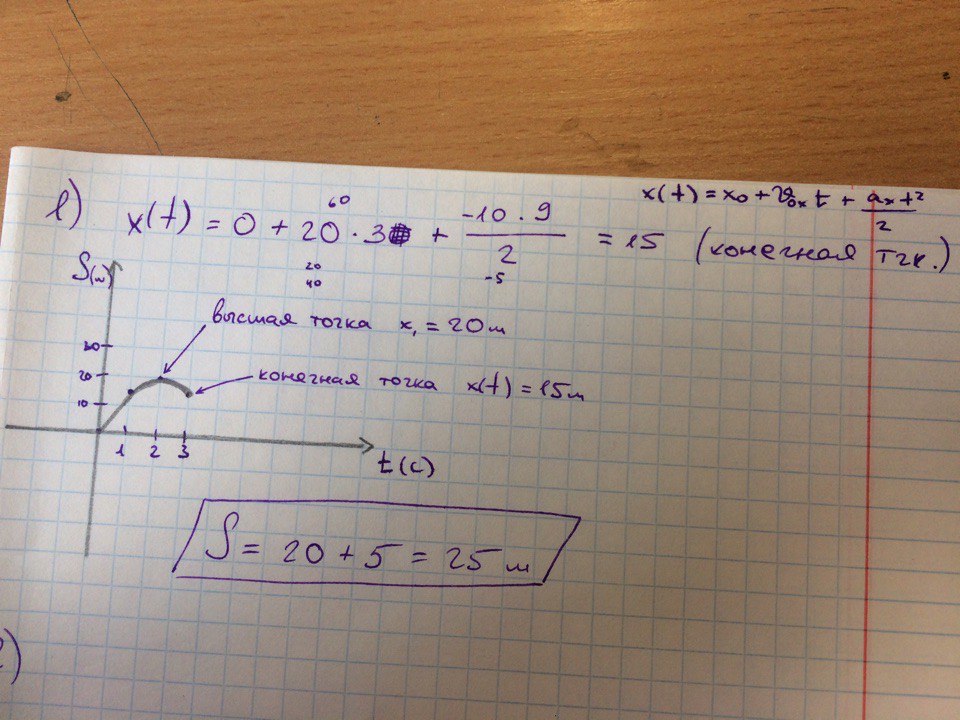 x(t) = x₀ + v₀ₓ t + aₓ t² / 2
1) x(t) = 0 + 20 · 3 + -10 · 9 / 2 = 15 (конечная тчк.)
60
20
40
-5
S(м)
высшая точка x₁ = 20 м
30
20
конечная точка x(t) = 15 м
10
1 2 3
t(c)
S = 20 + 5 = 25 м
2)